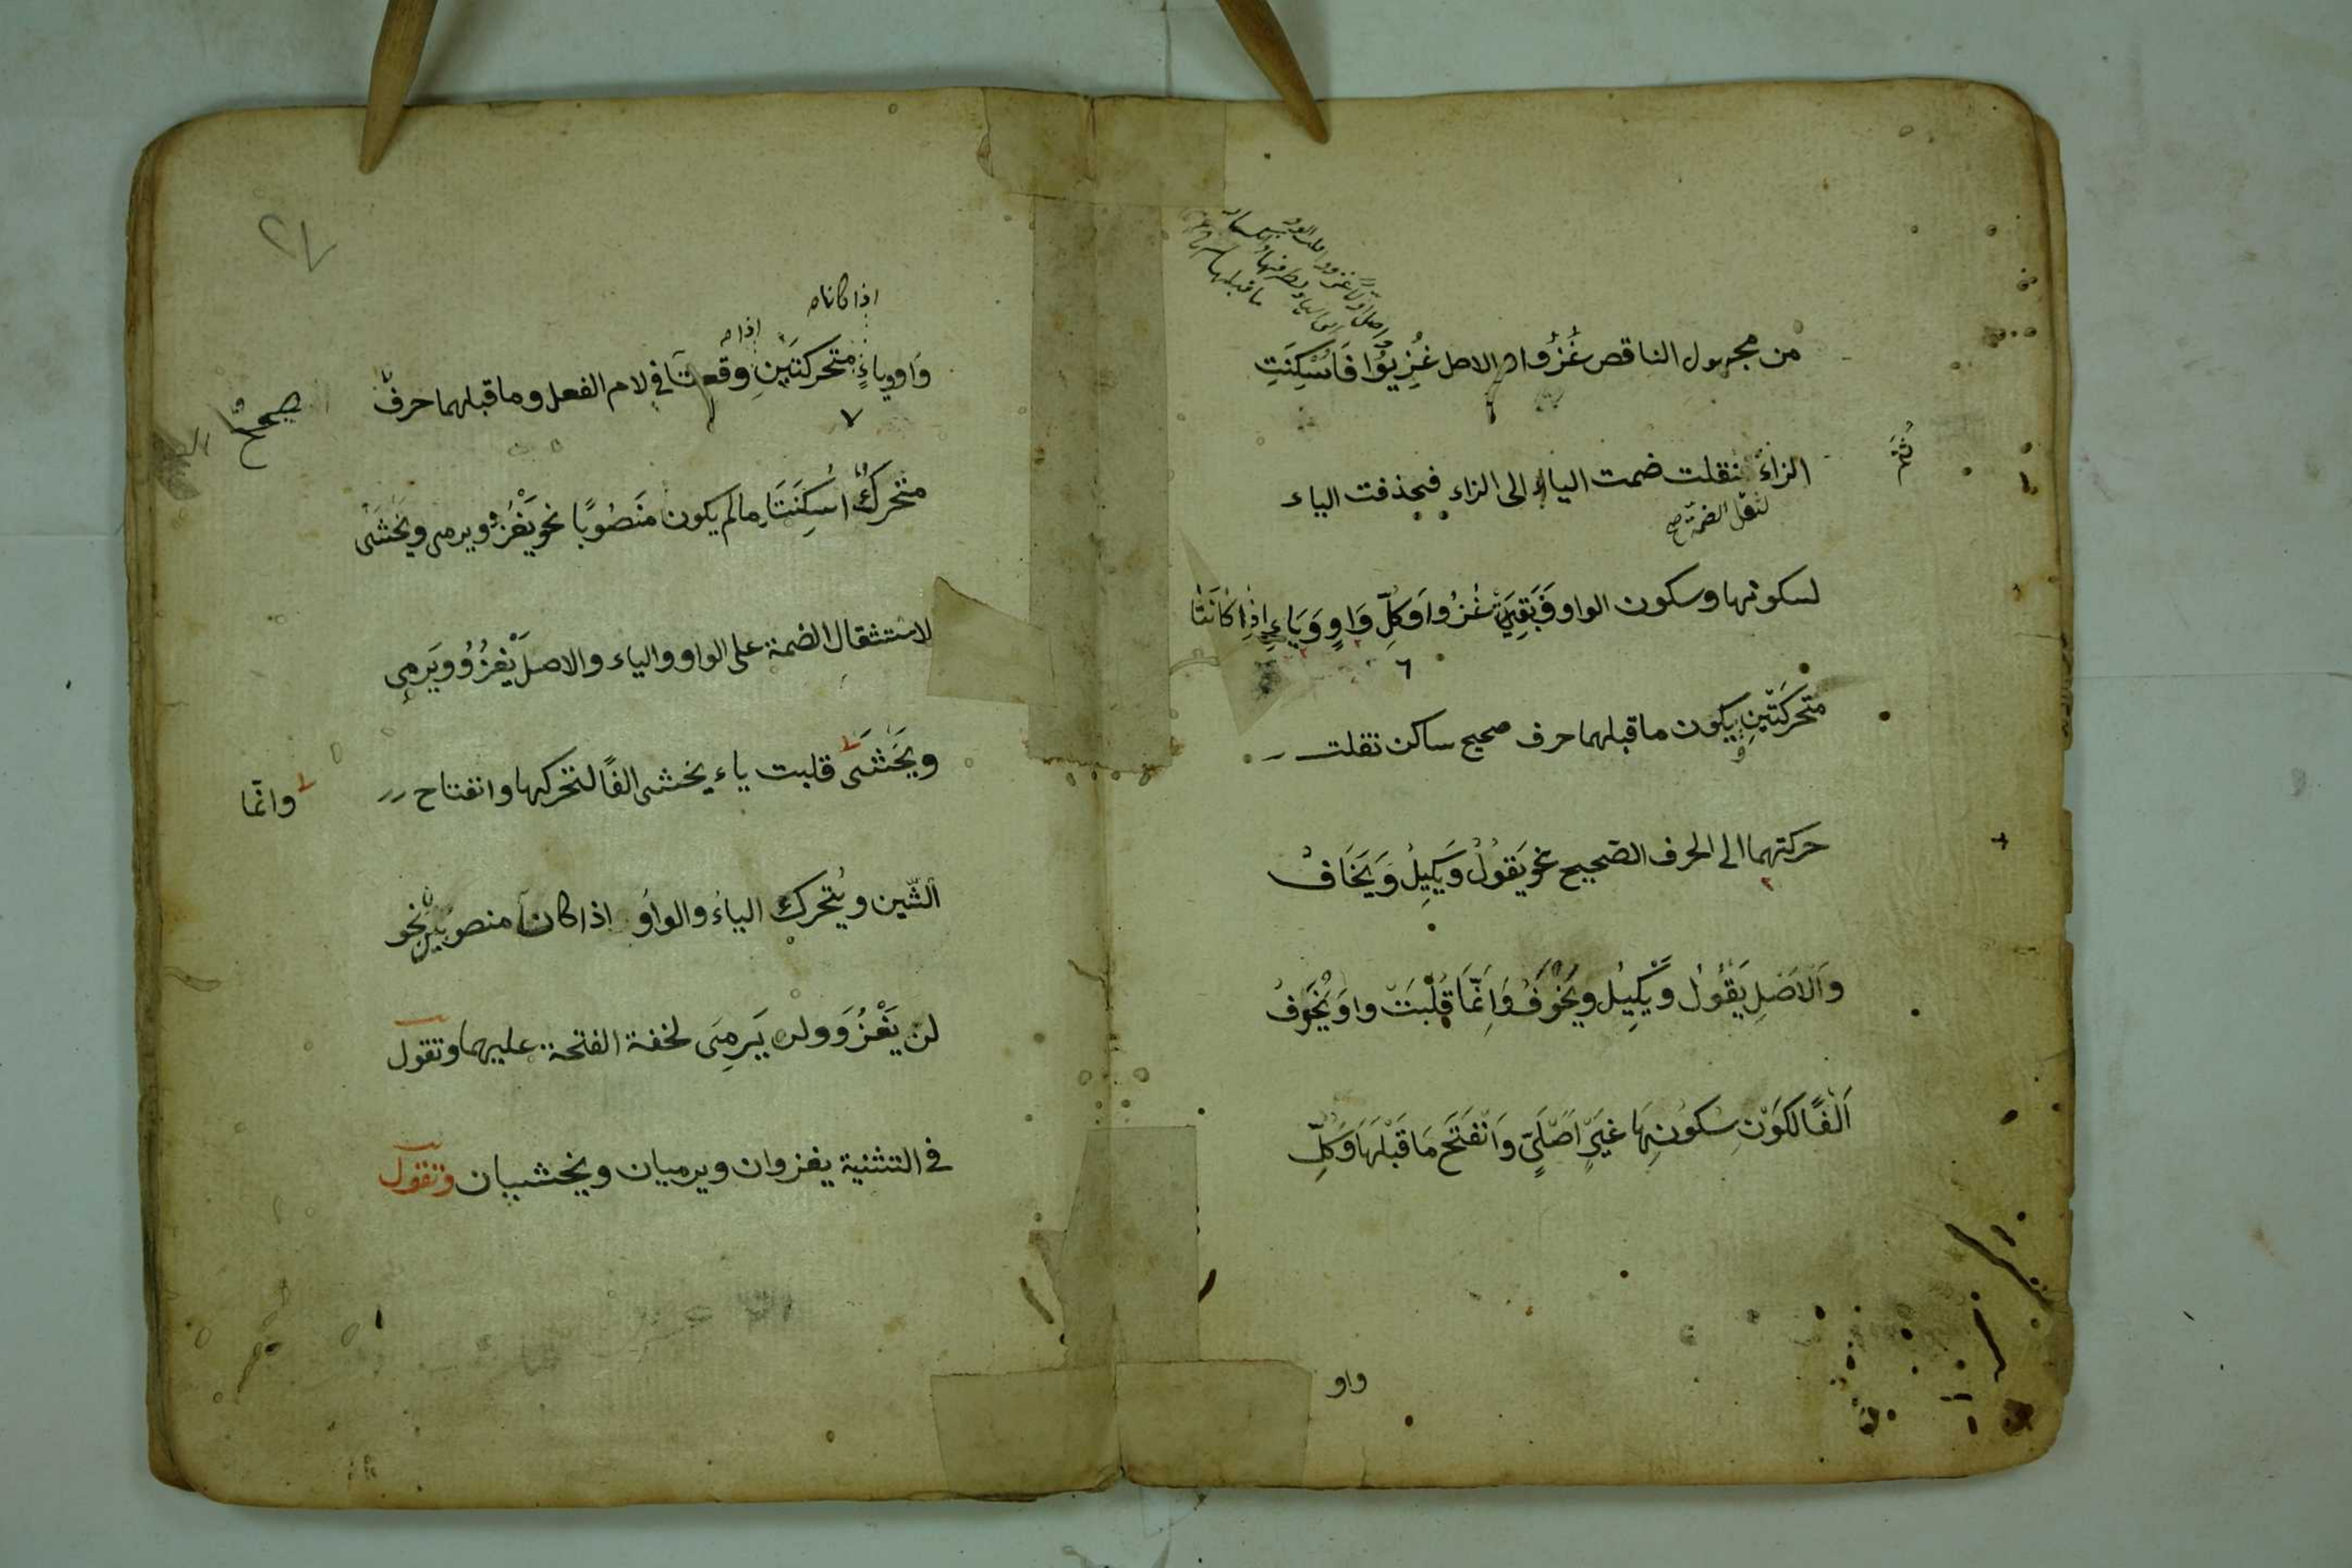 من مجهول الناقص غُزُوا والاصل غُزِيُوُا فَاُسْكِنَتِ
الزاءُ نقلت ضمت الياء الى الزاء فحذفت الياء
لثقل الضمة صح
ثُمَّ
لسكونها وسكون الواو فَبَقِىَ غُزُوا وَكُلِّ وَاوٍ وَيَاءٍ اِذَا كَانَتَا
متحَركَتَينِ يكون ما قبلهما حرف صحيح ساكن نقلت
حركتهما الى الحرف الصَحيح نحو يَقُوْلُ وَيَكِيلُ وَيَخَافُ
وَالاَصْلِ يَقْوُلُ وَيَكْيِلُ ويَخْوَفُ وَاِنَّمَا قُلْبَتْ واوَ يَخْوَفُ
اَلْفًا لكَوْنِ سِكُونِهَا غَيْرِ اَصْلَىٍّ وَانْفَتَحَ مَا قَبْلَهَا وَكُلِّ
واو
٢٧
اذا كانا صح
وَاوٍ وياءٍ متحركتَيْنِ وقعتا في لام الفعل وما قبلهما حرفٌ
صحيحٌ
متحركٌ اُسْكِنَتَا مالم يكون مَنصُوبًا نحو يَغْزُو ويرمى ويَخْشَى
لاستثقال الضمة على الواو والياء والاصل يَغْزُوُ ويَرمِىُ
ويَخْشَىُ قلبت ياء يخشى الفًا لتحركها وانفتاح
وانّما
الشّين ويُتحرك الياءُ والواوُ اذا كان منصوبَيْن نحو
لن يَغْزُوَ ولن يَرمِىَ لخفة الفتحة عليهما وتقول
في التثنية يغزوان ويرميان ويخشيان وتقول